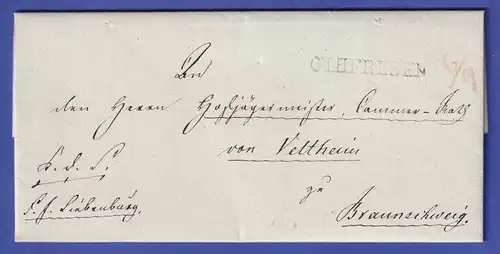 An
OTHFRESEN
den Herrn Hofjägermeister, Cammer-Rath
von Veltheim
K. d. S.
zu
F. f. Liebenburg.
Braunschweig.